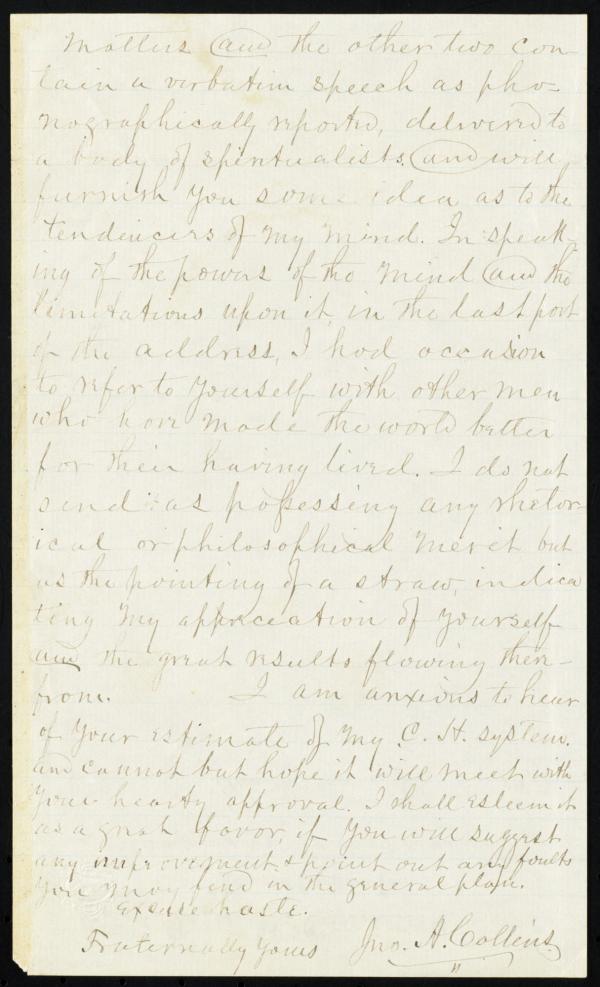 Matters and the other two con-
tain a verbatim speech as pho-
nographically reported, delivered to
a body of spiritualists and will
furnish you some idea as to the
tendencies of my mind. In speak-
ing of the powers of the mind and the
limitations upon it, in the last part
of the address, I had occasion
to refer to yourself with other men
who have made the world better
for their having lived. I do not
send as possessing any rhetor-
ical or philosophical merit but
as the pointing of a straw, indica
ting my appreciation of yourself
and the great results flowing there-
from. I am anxious to hear
of your estimate of my C. H. system.
and cannot but hope it will meet with
your hearty approval. I shall esteem it
as a great favor, if you will suggest
any improvement & point out any faults
you may find in the general plan.
Excuse haste.
Fraternally yours Jno. A. Collins